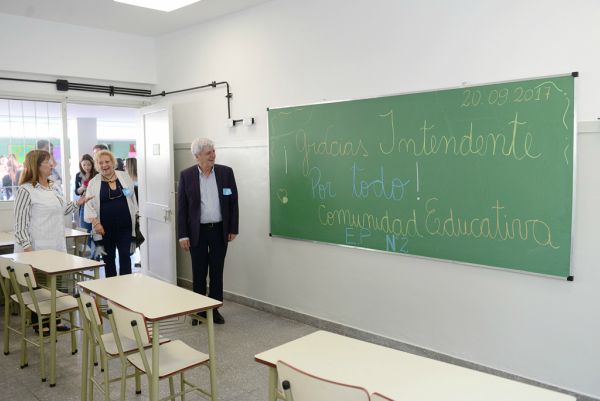 20.09.2017
¡ Gracias Intendente
Por todo!
Comunidad Educativa
E.P. N°2